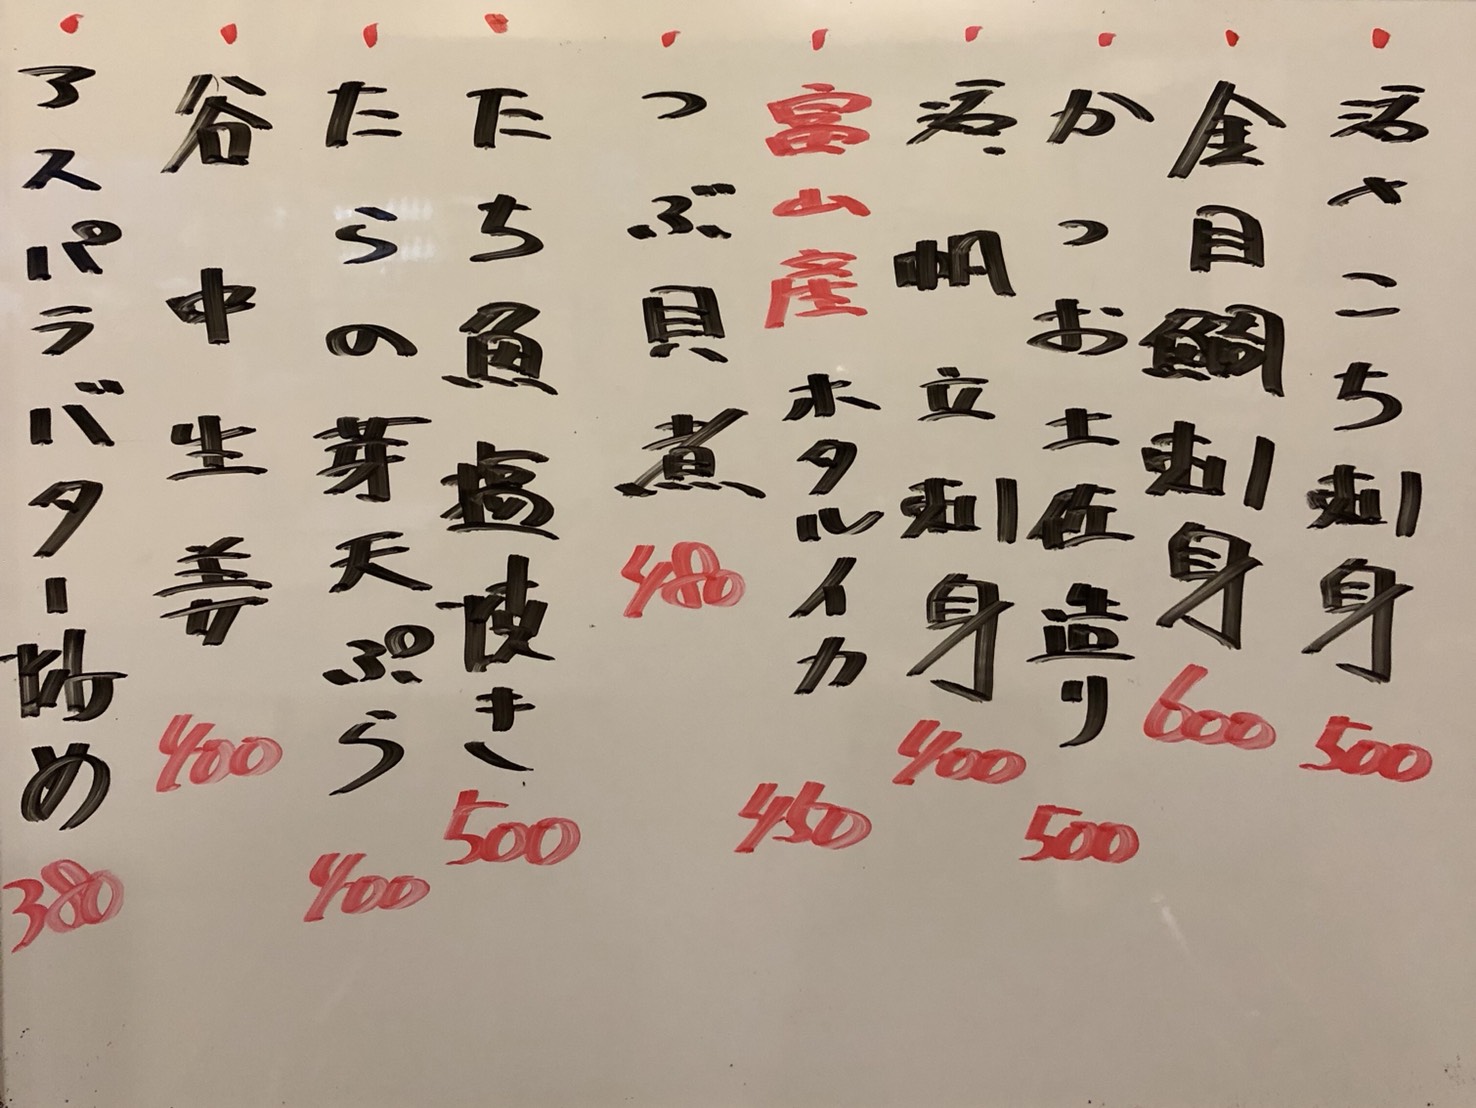 活〆こち刺身 500
金目鯛刺身 600
かつお土佐造り 500
活帆立刺身 400
富山産ホタルイカ 450
つぶ貝煮 480
たち魚塩焼き 500
たらの芽天ぷら 400
谷中生姜 400
アスパラバター炒め 380